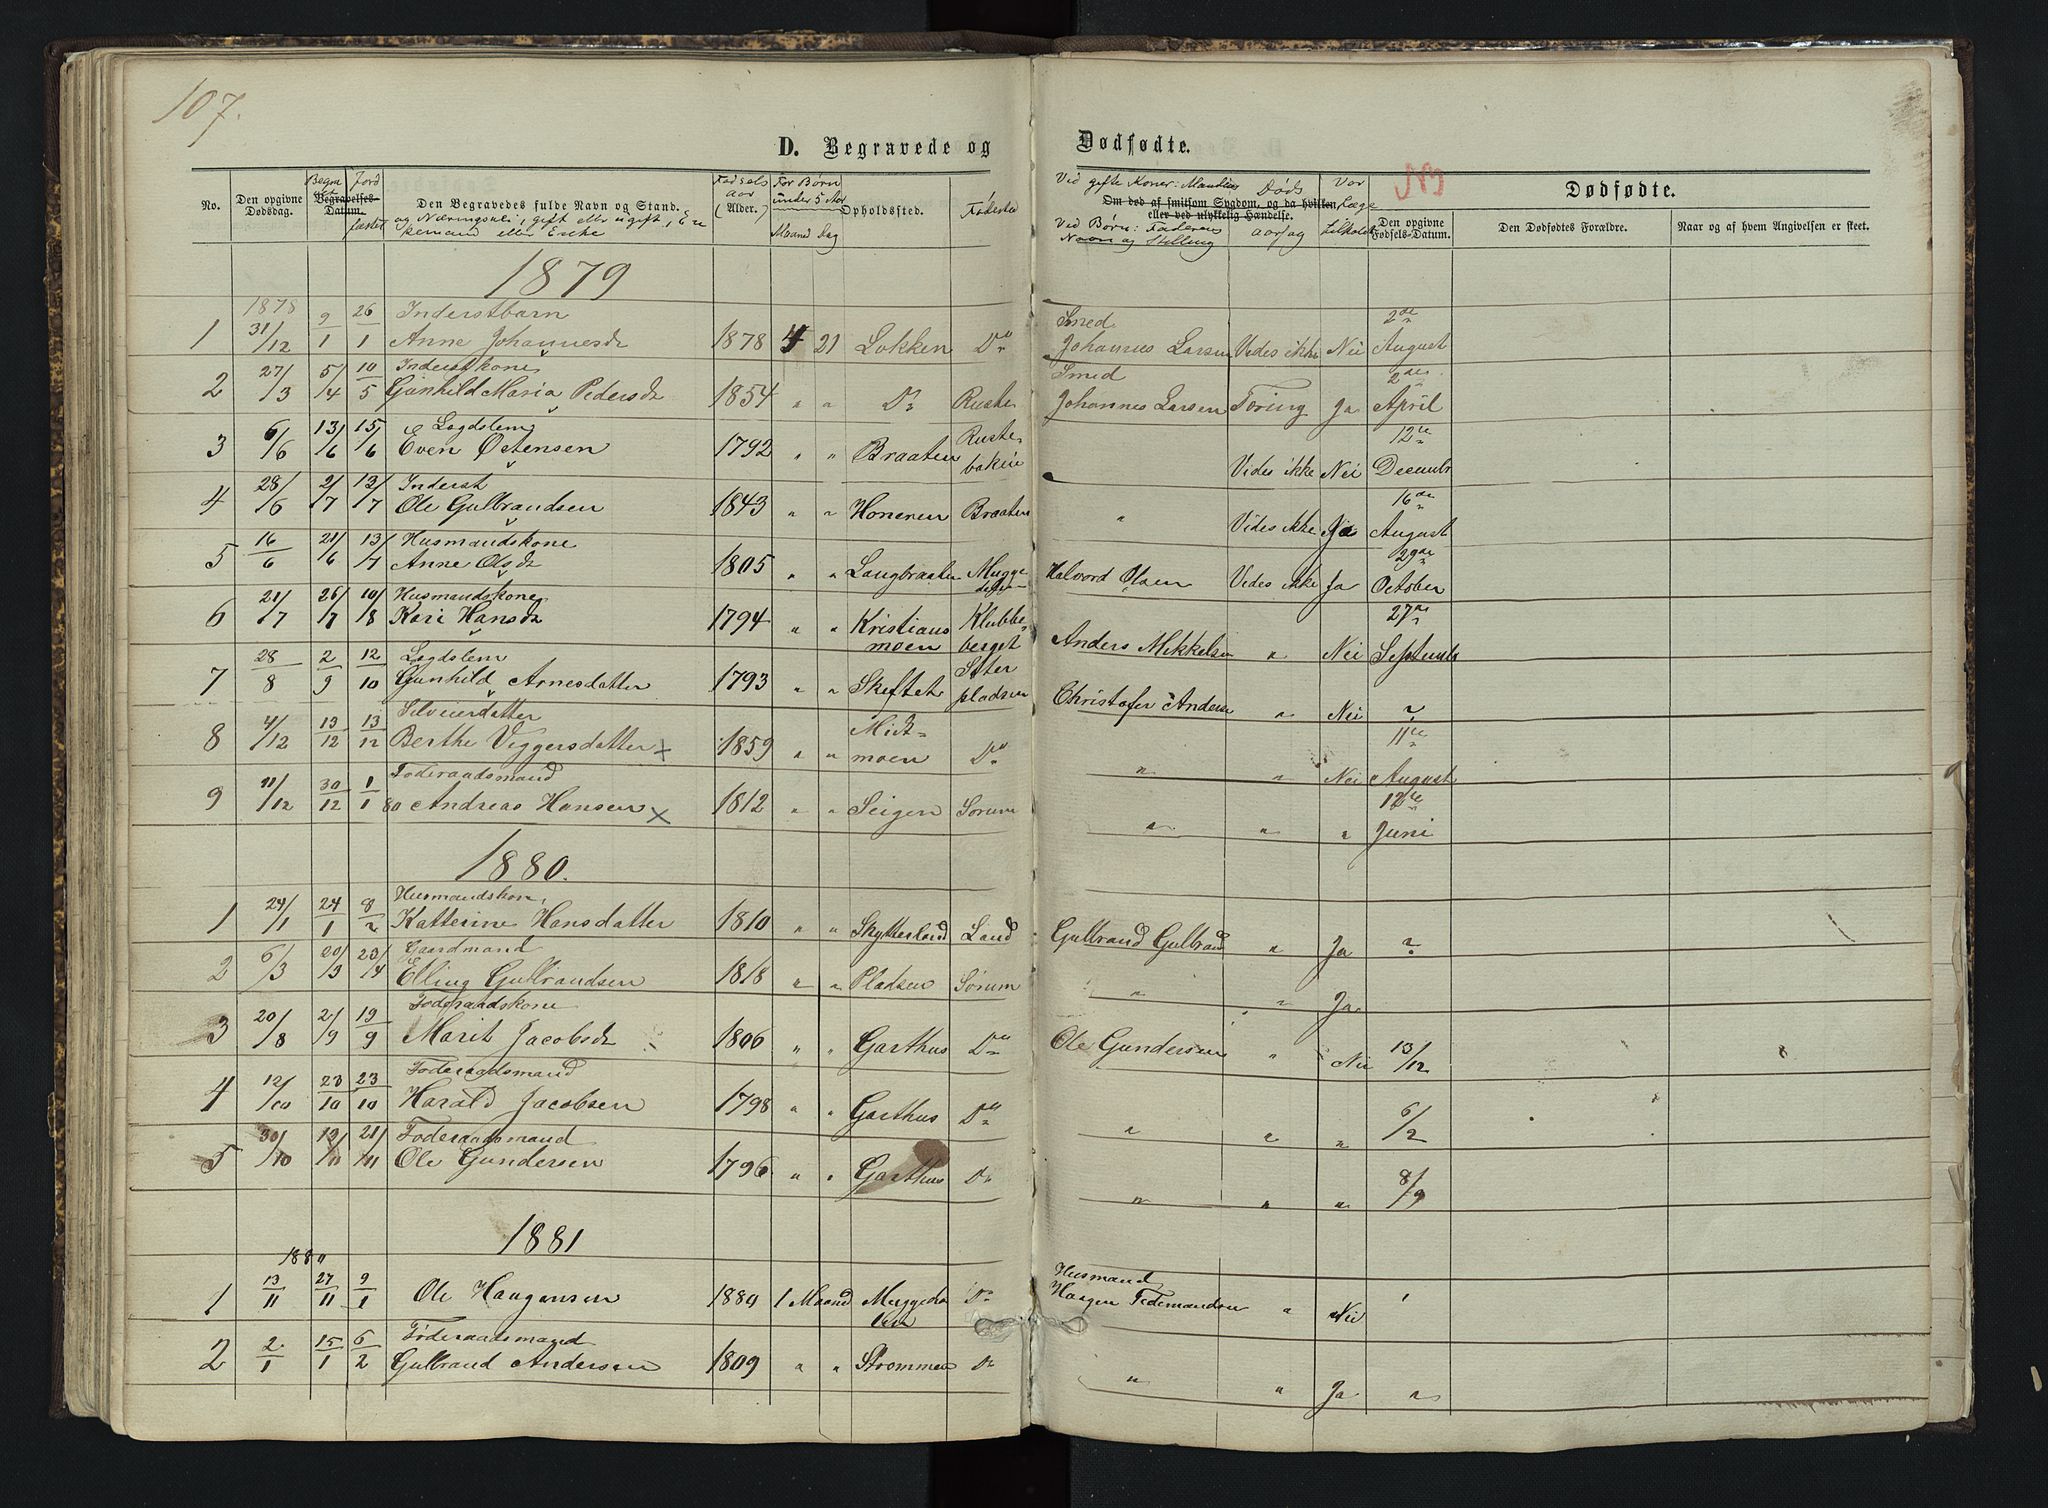 107.
D. Begravede og Dødfødte.
No.
Den opgivne Dødsdag.
Begra vet
Begravelses-Datum.
Jord fæstet
Den Begravedes fulde Navn og Stand.
og Næringsvei, gift eller ugift, En
kemand eller Enke
Fødsels aar
(Alder.)
For Børn under 5 Aar
Maaned Dag
Opholdssted.
Fødested
Vid gifte Koner: Mandens
Om død af smitsom Sygdom, og da hvilken
eller ved ulykkelig Hændelse.
Ved Børn: Faderens
Navn og Stilling
Døds aarsag
Var Læge tilkaldt
NB
Den opgivne Fødsels-Datum.
Dødfødte.
Den Dødfødtes Forældre.
Naar og af hvem Angivelsen er skeet.
1879
1878 Inderstbarn Smed 2de
1 31/12 9/1 26/1 Anne Johannesd 1878 4 21 Løkken Do Johannes Larsen Vides ikke Nei August
Inderstkone Smed 2den
2 27/3 5/4 10/5 Gunhild Maria Pedersd 1854 " " Do Ruste Johannes Larsen Tæring Ja April
Lægdslem 12te
3 6/6 13/6 15/6 Even Østensen 1792 " " Braaten Ruste bakin " Vides ikke Nei Decembr
Inderst 16de
4 28/6 2/7 13/7 Ole Gulbrandsen 1843 " " Honeren Braaten " Vides ikke Ja August
Husmandskone 29de
5 16/6 21/6 13/7 Anne Olsd 1805 " " Langbraaten Mugge Halvord Olsen Vides ikke Ja October
Husmandskone 27de
6 21/7 26/7 10/8 Kari Hansd 1794 " " Kristians moen Klubbe berget Anders Mikkelsen " Nei Septembr
Lægdslem
7 28/8 2/9 12/10 Gunhild Arnesdatter 1793 " " Skeftet Sæter pladsen Christofer Anders " Nei ?
Selveierdatter 11te
8 4/12 13/12 13/12 Berthe Viggersdatter x 1859 " " Midt moen Do " " Nei August
Føderaadsmand 12te
9 11/12 30/12 1/1 80 Andreas Hansen x 1812 " " Seigen Sørum " " " Juni
1880.
Husmandskon,
1 24/1 8/2 Katterine Hansdatter 1810 " " Skytterland Land Gulbrand Gulbrand " Ja ?
Gaardmand
2 6/3 20/3 Elling Gulbrandsen 1818 " " Pladsen Sørum " " Ja
Føderaadskone
3 20/8 2/9 19/9 Marit Jacobsd 1806 " " Garthus Do Ole Gundersen " Nei 13/12
Føderaadsmand
4 12/10 23/10 23/10 Harald Jacobsen 1798 " " Garthus Do " " " 6/2
Føderaadsmand
5 30/10 13/11 21/11 Ole Gundersen 1796 " " Garthus Do " " " 8/9
1881
1880 Husmand
1 13/11 27/11 9/1 Ole Haagensen 1880 1 Maaned Haagen Tidemandsen " Nei
Føderaadsmand
2 2/1 15/1 6/2 Gulbrand Andersen 1809 " " Strommen Do " " Ja "